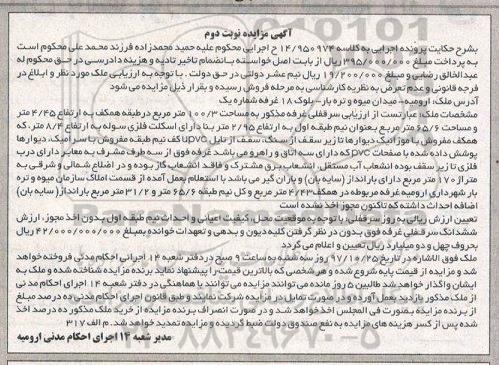 آگهی مزایده نوبت دوم
بشرح حکایت پرونده اجرایی به کلاسه ۱۴/۹۵۰۹۷۴ ح اجرایی محکوم علیه حمید محمدزاده فرزند محمد علی محکوم است
به پرداخت مبلغ ۳۹۵/۰۰۰/۰۰۰ ریال از بابت اصل خواسته بانضمام تاخیر تادیه و هزینه دادرسی در حق محکوم له
عبدالخالق رضایی و مبلغ ۱۹/۲۰۰/۰۰۰ ریال نیم عشر دولتی در حق دولت . با توجه به ارزیابی ملک مورد نظر و ابلاغ در
فرجه قانونی و عدم تعرض به نظریه کارشناسی به مرحله فروش رسیده و بقرار ذیل مزایده می شود
آدرس ملک: ارومیه-میدان میوه و تره بار- بلوک ۱۸ غرفه شماره یک
مشخصات ملک: عبارتست از ارزیابی سرقفلی غرفه مذکور به مساحت ۱۰۰/۳ متر مربع در طبقه همکف به ارتفاع ۴/۴۵ متر
و مساحت ۶۵/۶ متر مربع بعنوان نیم طبقه اول به ارتفاع ۲/۹۵ متر بنا دارای اسکلت فلزی سوله به ارتفاع ۸/۴ متر، که
همکف مفروش با موزائیک دیوار ها تا زیر سقف از سنگ، سقف از تایل pvc با کف نیم طبقه مفروش با سرامیک، دیوارها
پوشش داده شده با صفحات pvc که دارای سه اتاق و راهرو می باشد غرفه فوق از سه طرف مشرف به معابر دارای درب
فلزی تا زیر سقف بوده انشعاب آب مستقل، انشعاب برق مشترک و فاقد انشعاب گاز بوده و در اضلاع شمالی و شرقی به
متراژ ۱۷۰ متر مربع دارای بارانداز (سایه بان) و باران گیر می باشد با استعلام بعمل آمده از قسمت املاک سازمان میوه و تره
بار شهرداری ارومیه غرفه مربوطه در همکف ۴/۴۳ متر مربع و کل نیم طبقه ۶۵/۶ متر و ۳۱/۲ متر مربع بارانداز( سایه بان)
اضافه احداث داشته که تاکنون مجوز اخذ نشده است
تعیین ارزش ریالی به روز سرقفلی: با توجه به موقعیت محل، کیفیت اعیانی و احداث نیم طبقه اول بدون اخذ مجوز، ارزش
ششدانگ سرقفلی غرفه فوق بدون در نظر گرفتن کلیه دیون و بدهی و تعهدات خوانده بمبلغ ۴۲/۰۰۰/۰۰۰/۰۰۰ ریال
بحروف چهل و دو میلیارد ریال تعیین و اعلام می گردد
ملک فوق الاشاره در تاریخ ۹۷/۱۰/۲۵ روز سه شنبه به ساعت ۹ صبح در دفتر شعبه ۱۴ اجرایی احکام مدنی فروخته خواهد
شد و مزایده از قیمت پایه شروع شده و هر شخصی که بالاترین قیمت را پیشنهاد نماید برنده مزایده شناخته شده و ملک به
ایشان واگذار خواهد شد طالبین ۵ روز مانده می توانند مزایده می توانند با هماهنگی در دفتر شعبه ۱۴ اجرای احکام مدنی
از ملک مذکور بازدید بعمل آورده و در صورت تمایل در مزایده شرکت نمایند و طبق قانون اجرای احکام مدنی ده درصد مبلغ
از برنده مزایده بصورت فی المجلس اخذ خواهد شد و در صورت انصراف برنده مزایده از خرید ملک مذکور ده درصد اخذ
شده پس از کسر هزینه های مزایده به نفع صندوق دولت ضبط گردیده و مزایده تمدید خواهد شد. م الف ۳۱۷
مدیر شعبه ۱۴ اجرای احکام مدنی ارومیه